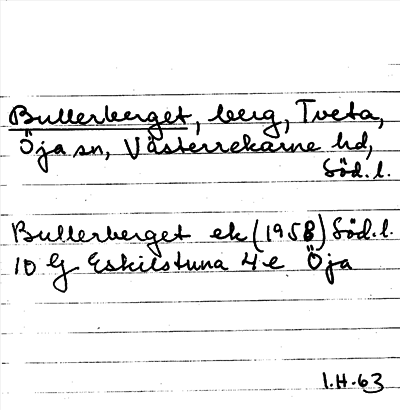 Bullerberget, berg, Tveta,
Öja sn, Västerrekarne hd,
Söd. l.
Bullerberget ek (1958) Söd. l.
10 G Eskilstuna 4 e Öja
I.H-63